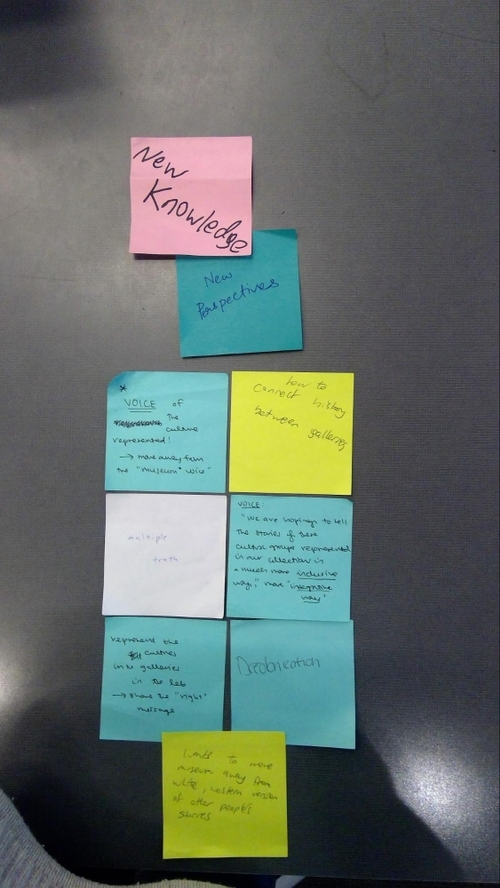 New
Knowledge
New
Perspectives
*
VOICE of
the
culture
represented!
→ move away from
the "museum" voice"
how to
connect history
between galleries
multiple
truth
VOICE:
"We are hoping to tell
the stories of these
culture groups represented
in our collection in
a much more inclusive
way," more "integrative
way"
represent the
cultures
in the galleries
in the lab
→ share the "right"
message
Decolonization
Want to move
museum away from
white, western version
of other people's
stories